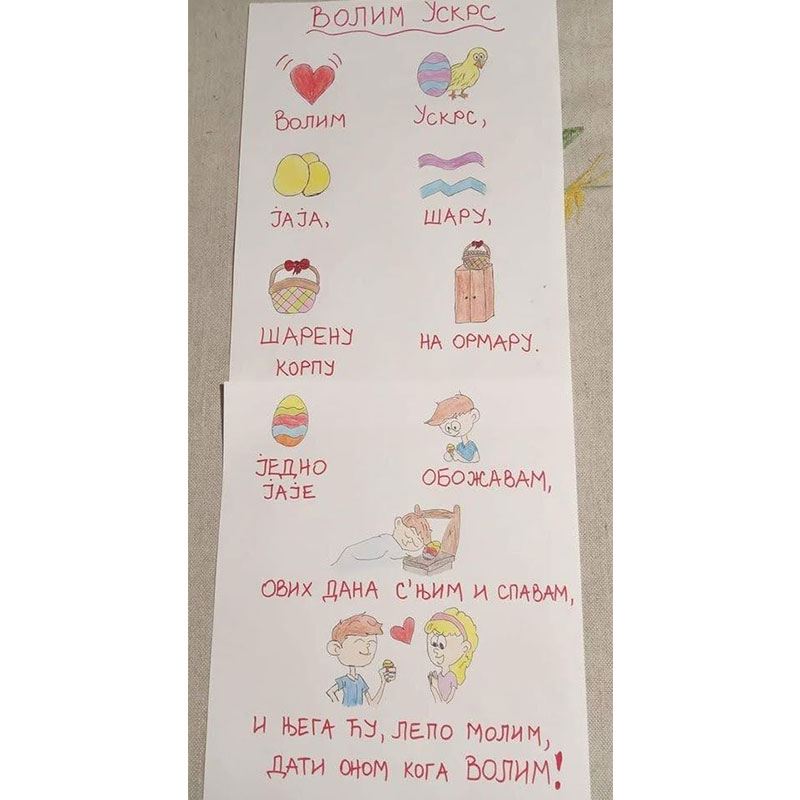 ВОЛИМ УСКРС
ВОЛИМ УСКРС,
ЈАЈА, ШАРУ,
ШАРЕНУ КОРПУ
НА ОРМАРУ.
ЈЕДНО ЈАЈЕ
ОБОЖАВАМ,
ОВИХ ДАНА С'ЊИМ И СПАВАМ,
И ЊЕГА ЋУ, ЛЕПО МОЛИМ,
ДАТИ ОНОМ КОГА ВОЛИМ!